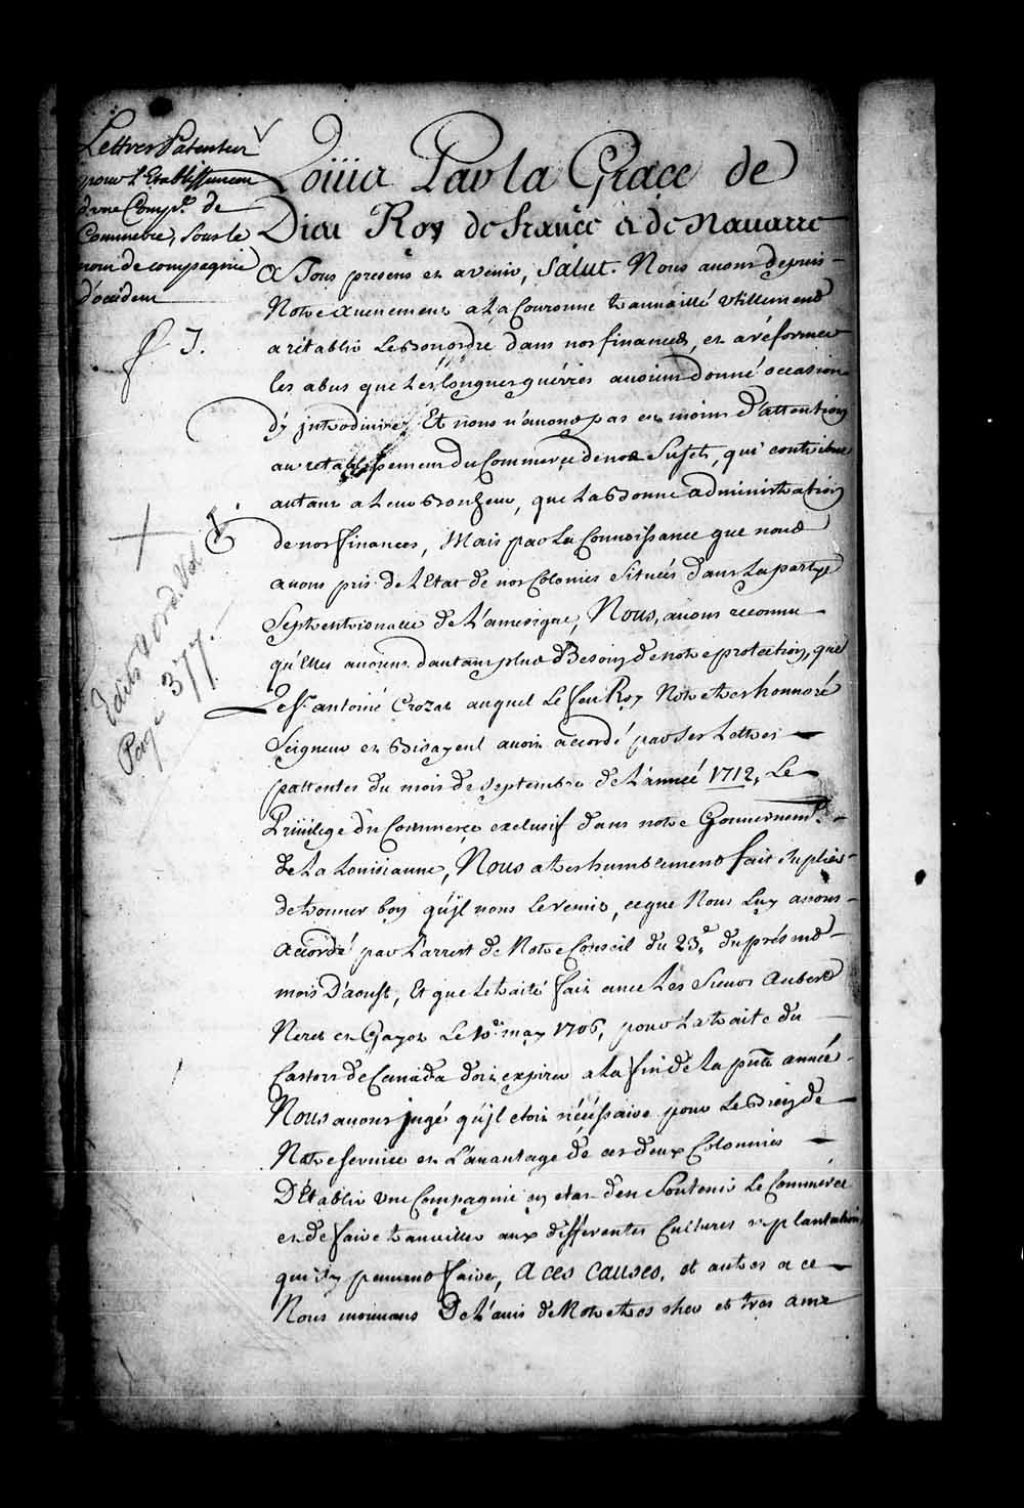 Lettres Patentes
pour l'Etablissement
d'une Comp.e de
Commerce, sous le
nom de compagnie
d'occident
f. 1.
Edits & ord. Vol 1.
Page 377.
Louis Par la Grace de
Dieu Roy de france & de Navarre
A Tous presens et avenir, Salut. Nous avons depuis
Notre avenement a la Couronne travaillé utillement
a rétablir le bon ordre dans nos finances, et a réformer
les abus que les longues guérres avoient donné occasion
d'y introduire, Et nous n'avons pas eu moins d'attention
au retablissement du Commerce de nos Sujets, qui contribue
autant a leur bonheur, que la bonne administration
de nos finances, Mais par la Connoissance que nous
avons pris de l'Etat de nos Colonies situées dans la partye
Septentrionalle de l'amerique, Nous, avons reconnu
qu'elles avoient d'autant plus Besoin de notre protection, que
Le Sr. antoine Crozat auquel le feu Roy Notre tres honnoré
Seigneur et Bisayeul avoit accordé par ses Lettres
pattentes du mois de septembre de l'année 1712, Le
Privilege du Commerce exclusif dans notre Gouvernemt.
de la Louisianne, Nous a tres humblement fait suplier
de trouver bon qu'jl nous le remis, ce que Nous Luy avons
accordé par l'arrest de Notre Conseil du 23.e du présent
mois D'aoust, Et que le traité fait avec Les Sieurs Aubert
Neret et Gayot Le 10.e may 1706, pour la traite du
Castors de Canada doit expirer a la fin de la pnte année
Nous avons jugé qu'jl etoit nécéssaire pour le Bien de
Notre service et L'avantage de ces deux Colonnies
D'Etablir une Compagnie en etat d'en Soutenir le Commérce
et de faire travailler aux differentes Cultures et plantations
qui s'y peuvent faire, A ces causes, et autres a ce
Nous mouvans De l'avis de Notre tres cher et tres amé